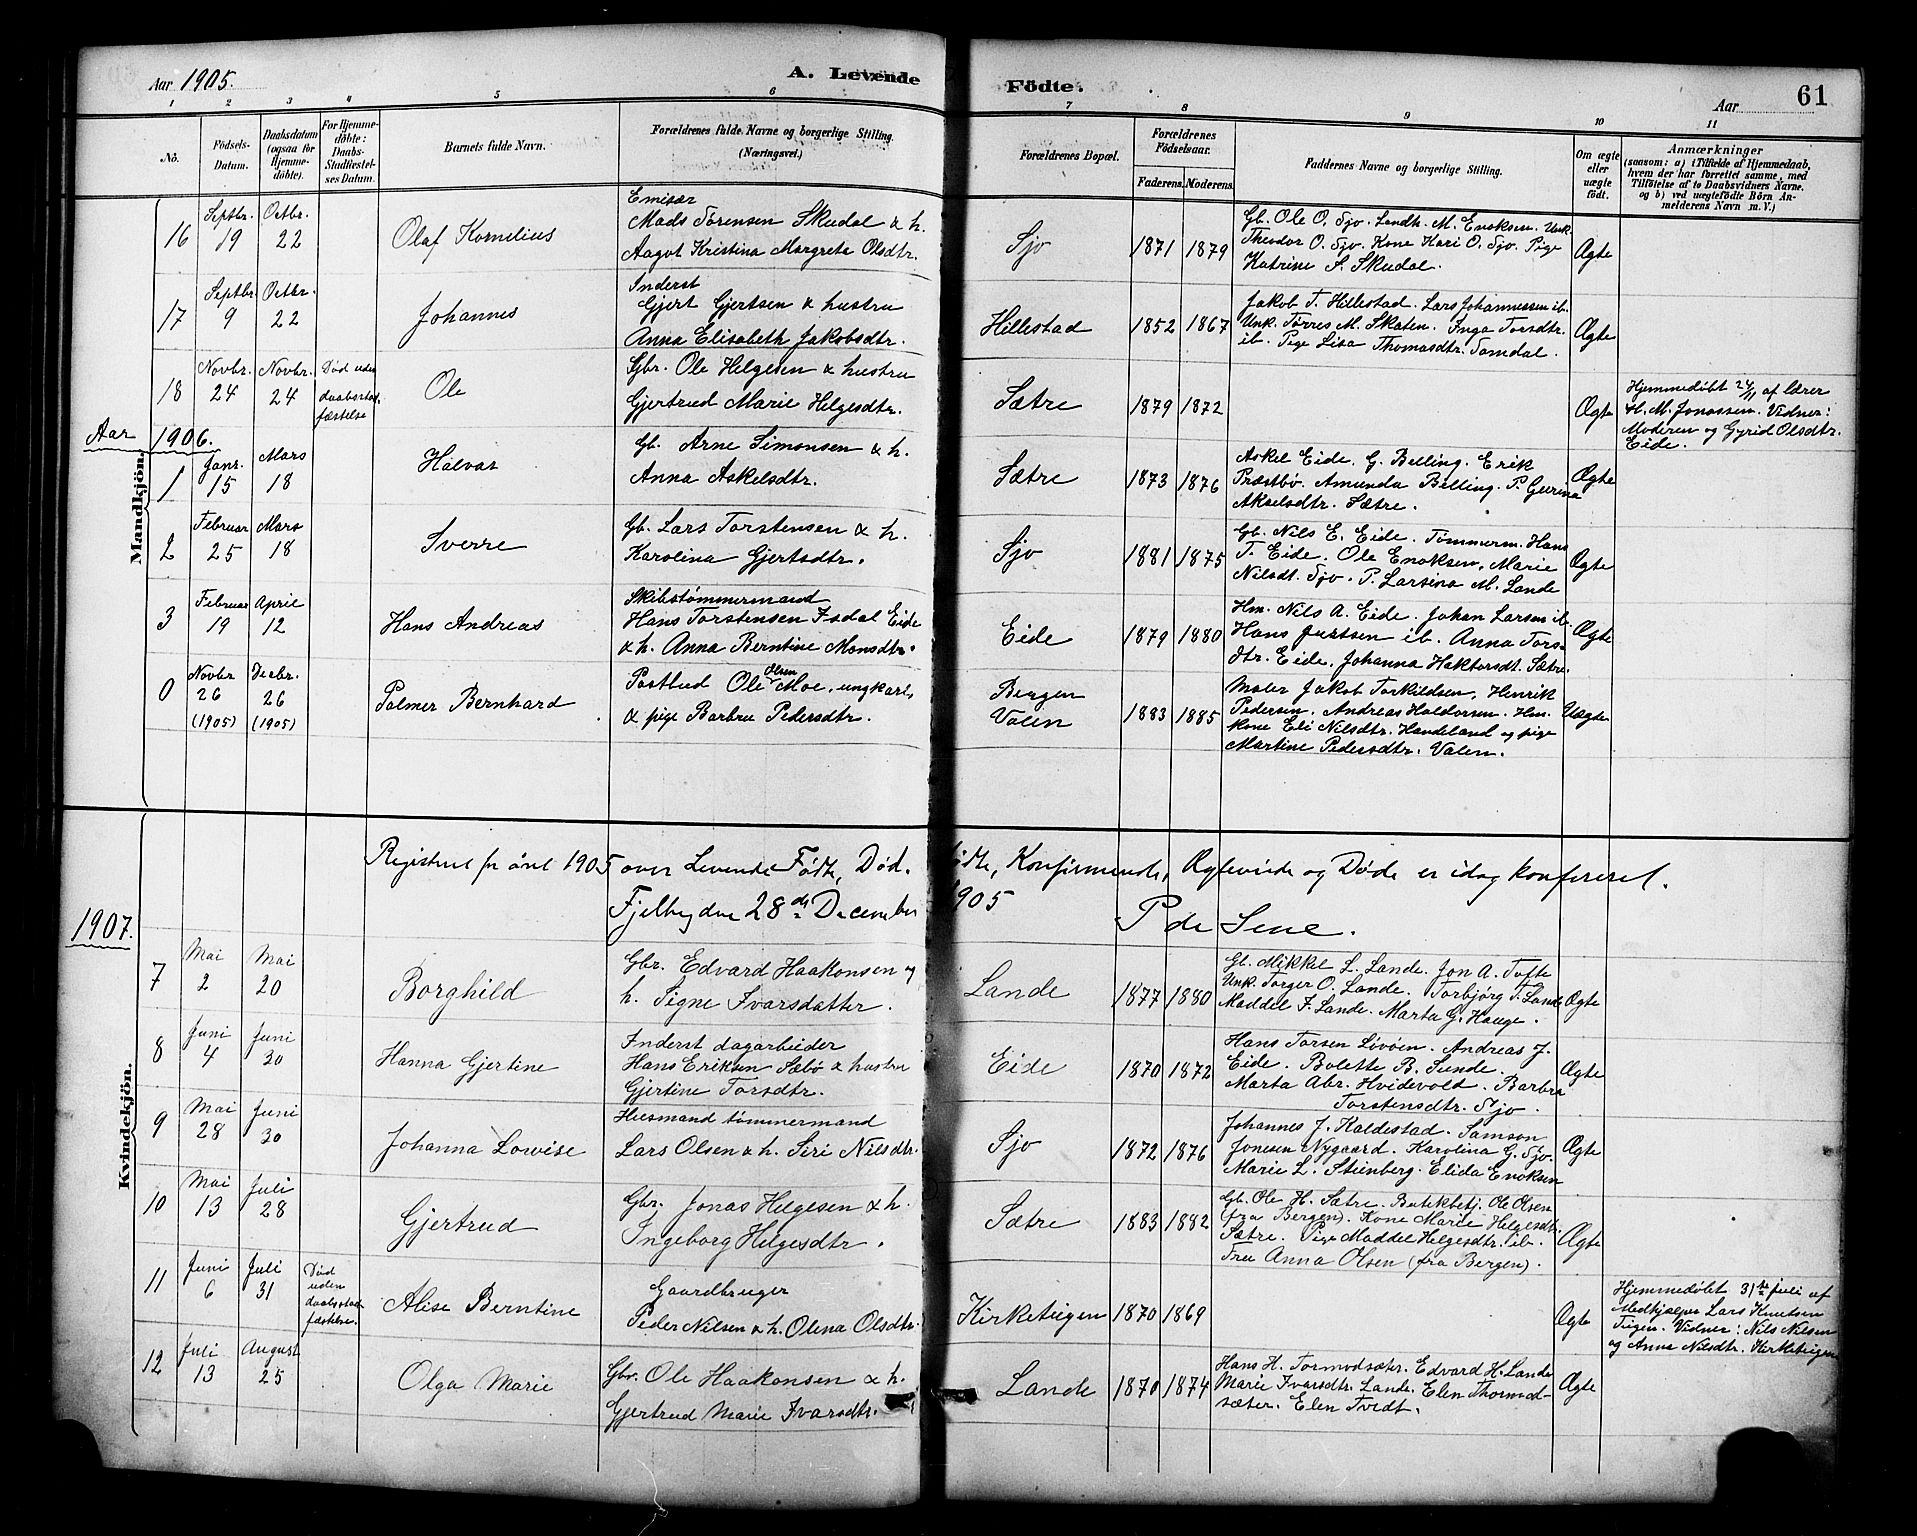 Aar 1905. A. Levende Födte. Aar 61
1 2 3 4 5 6 7 8 9 10 11
No. Födsels-Datum. Daabsdatum (ogsaa for Hjemmedöbte). For Hjemmedöbte: Daabs-Stadfæstelses Datum. Barnets fulde Navn. Forældrenes fulde Navne og borgerlige Stilling. (Næringsvei.) Forældrenes Bopæl. Forældrenes Födselsaar. Faderens. Moderens. Faddernes Navne og borgerlige Stilling. Om ægte eller uægte födt. Anmærkninger
(saasom: a) i Tilfælde af Hjemmedaab,
hvem der har forrettet samme, med
Tilföielse af to Daabsvidners Navne,
og b) ved uægtefödte Börn An-
melderens Navn m. V.)
Mandkjön.
16 Septbr. 19 Octbr. 22 Olaf Kornelius
Emisær
Mads Sørensen Skudal & h.
Aagot Kristina Margrete Olsdtr.
Sjo 1871 1879
Gb. Ole O. Sjo. Landh. M. Enoksen. Unk.
Theodor O. Sjo. Kone Kari O. Sjo. Pige
Katrine S. Skudal.
Ægte
17 Septbr. 9 Octbr. 22 Johannes
Inderst
Gjert Gjertsen & hustru
Anna Elisabeth Jakobsdtr.
Hillestad 1852 1867
Jakob T. Hillestad. Lars Johannessen ib.
Unk. Tørres M. Skaten. Inga Torsdtr.
ib. Pige Lisa Thomasdtr. Tomdal.
Ægte
18 Novbr. 24 Novbr. 24 Død uden
daabsstad-
fæstelse
Ole
Gbr. Ole Helgesen & hustru
Gjertrud Marie Helgesdtr.
Sætre 1879 1872 Ægte
Hjemmedøbt 24/11 af lærer
H. M. Jonassen. Vidner:
Moderen og Gyrid Olsdtr.
Eide.
Aar 1906.
1 Janr. 15 Mars 18 Halvar
Gb. Arne Simonsen & h.
Anna Askelsdtr.
Sætre 1873 1876
Askel Eide. G. Belling. Erik
Præstbø. Amunda Belling. P. Gurina
Akselsdtr. Sætre.
Ægte
2 Februar 25 Mars 18 Sverre
Gb. Lars Torstensen & h.
Karolina Gjertsdtr.
Sjo 1881 1875
Gb. Nils E. Eide. Tømmerm. Hans
T. Eide. Ole Enoksen, Marie
Nilsdt. Sjo. P. Larsina M. Lande
Ægte
3 Februar 19 April 12 Hans Andreas
Skibstømmermand
Hans Torstensen Isdal Eide
& h. Anna Berntine Monsdtr.
Eide 1879 1880
Hm. Nils A. Eide. Johan Larsen ib.
Hans Justsen ib. Anna Tors-
dtr. Eide. Johanna Haktorsdt. Sætre.
Ægte
0 Novbr 26 (1905) Decbr. 26 (1905) Palmer Bernhard
Postbud Ole Olsen Moe, ungkarl,
& pige Barbru Pedersdtr.
Bergen
Valen
1883 1885
Maler Jakob Torkildsen, Henrik
Pedersen. Andreas Haldorsen. Hm.
kone Eli Nilsdtr. Handeland og pige
Martine Pedersdtr. Valen.
Uægte
Registret for året 1905 over Levende Fødte, Dødfødte, Konfirmerede, Ægteviede og Døde er idag konfereret.
Fjelberg den 28de December 1905
P de Seue.
Kvindekjön.
1907.
7 Mai 2 Mai 20 Borghild
Gbr. Edvard Haakonsen og
h. Signe Ivarsdatter.
Lande 1877 1880
Gb. Mikkel L. Lande. Jon A. Tofte
Unk. Torger O. Lande. Torbjørg T. Lande
Maddel I. Lande. Marta G. Hauge.
Ægte
8 Juni 4 Juni 30 Hanna Gjertine
Inderst dagarbeider
Hans Eriksen Sæbø & hustru
Gjertine Torsdtr.
Eide 1870 1872
Hans Torsen Løvøen. Andreas J.
Eide. Bolette B. Sunde.
Marta Abr. Hvidevold. Barbra
Torstensdtr. Sjo.
Ægte
9 Mai 28 Juni 30 Johanna Lovise
Husmand tømmermand
Lars Olsen & h. Siri Nilsdtr.
Sjo 1872 1876
Johannes J. Kaldestad. Samson
Jonsen Nygaard. Karolina G. Sjo.
Marie L. Stenberg. Elida Enoksen
Ægte
10 Mai 13 Juli 28 Gjertrud
Gbr. Jonas Helgesen & h.
Ingeborg Helgesdtr.
Sætre 1883 1882
Gb. Ole H. Sætre. Butikbetj. Ole Olsen
(fra Bergen). Kone Marie Helgesdt.
Sætre. Pige Maddel Helgesdtr. ib.
Fru Anna Olsen (fra Bergen).
Ægte
11 Juni 6 Juli 31 Død
uden
daabsstad-
fæstelse.
Alise Berntine
Gaardbruger
Peder Nilsen & h. Olena Olsdtr.
Kirketeigen 1870 1869 Ægte
Hjemmedøbt 31te juli af
Medhjælper Lars Knutsen
Teigen. Vidner: Nils Nilsen
og Anna Nilsdtr. Kirketeigen
12 Juli 13 August 25 Olga Marie
Gbr. Ole Haakonsen & h.
Gjertrud Marie Ivarsdtr.
Lande 1870 1874
Hans H. Tormodsæter. Edvard H. Lande
Marie Ivarsdtr. Lande. Elen Thormod-
sæter. Elen Tvedt.
Ægte